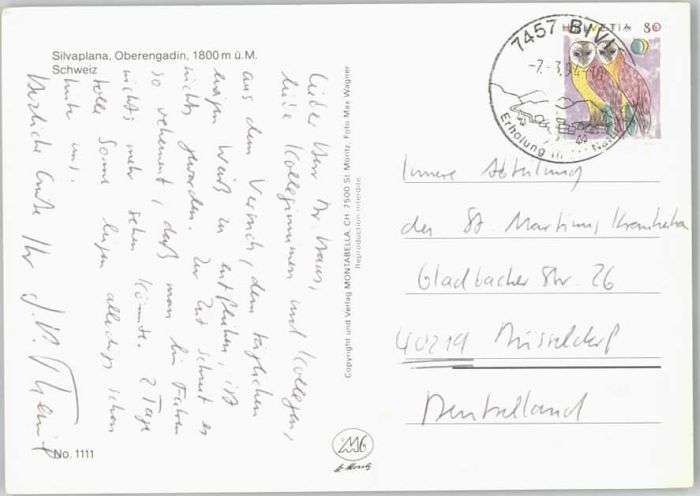 Silvaplana, Oberengadin, 1800 m ü.M.
Schweiz
Lieber Herr Dr.
liebe Kolleginnen und Kollegen,
aus dem Versuch, dem täglichen
Weiß zu entfliehen, ist
nichts geworden. Zur Zeit schneit es
so vehement, daß man beim Fahren
nichts mehr sehen könnte. 2 Tage
tolle Sonne liegen allerdings schon
hinter uns.
Herzliche Grüße Ihr
No. 1111
Copyright und Verlag MONTABELLA, CH 7500 St. Moritz, Foto Max Wagner
Reproduction interdite
HELVETIA 80
7457 BIVIO
-7.-3.94
Erholung in der Natur
Innere Abteilung
des St. Martinus Krankenha
Gladbacher Str. 26
40219 Düsseldorf
Deutschland